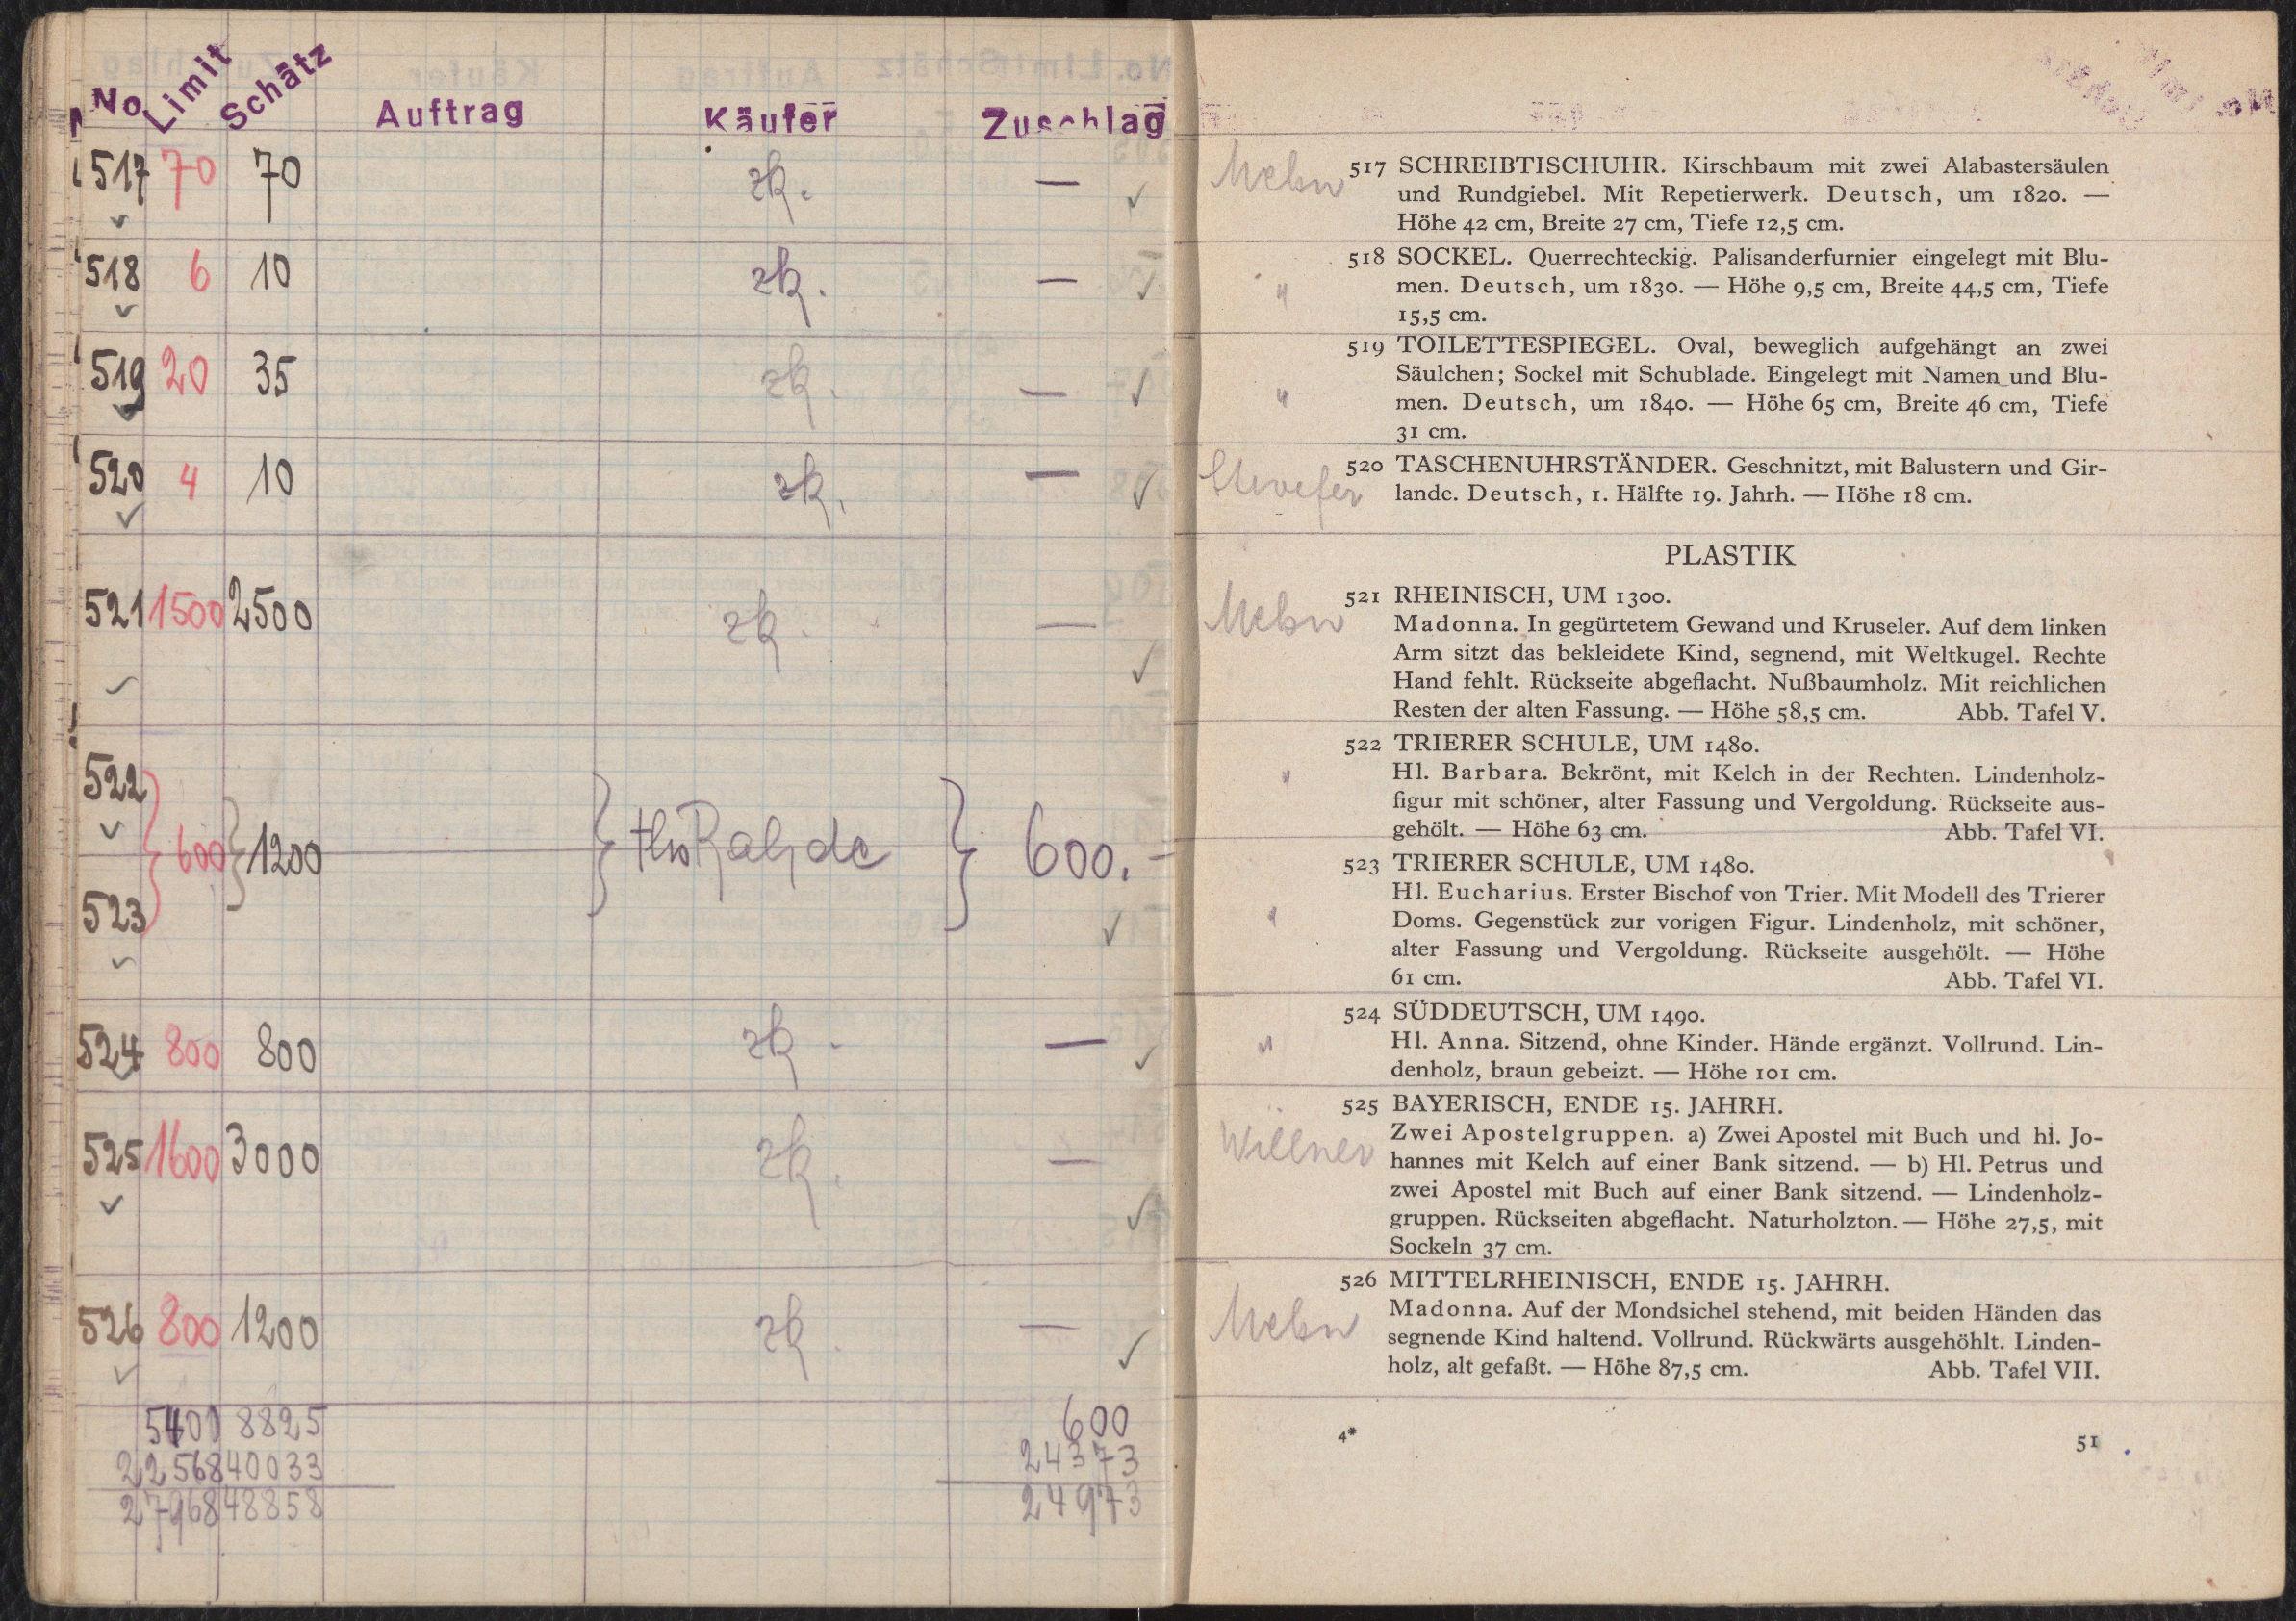 No Limit Schätz Auftrag Käufer Zuschlag
517 70 70 zk. —
518 6 10 zk. —
519 20 35 zk. —
520 4 10 zk. —
521 1500 2500 zk. —
522
600 1200 600.-
523
524 800 800 zk - —
525 1600 3000 zk. —
526 800 1200 zk. —
5400 8825 600
22568 40033 24373
27968 48858 24973
517 SCHREIBTISCHUHR. Kirschbaum mit zwei Alabastersäulen
und Rundgiebel. Mit Repetierwerk. Deutsch, um 1820. —
Höhe 42 cm, Breite 27 cm, Tiefe 12,5 cm.
518 SOCKEL. Querrechteckig. Palisanderfurnier eingelegt mit Blu-
" men. Deutsch, um 1830. — Höhe 9,5 cm, Breite 44,5 cm, Tiefe
15,5 cm.
519 TOILETTESPIEGEL. Oval, beweglich aufgehängt an zwei
Säulchen; Sockel mit Schublade. Eingelegt mit Namen und Blu-
" men. Deutsch, um 1840. — Höhe 65 cm, Breite 46 cm, Tiefe
31 cm.
520 TASCHENUHRSTÄNDER. Geschnitzt, mit Balustern und Gir-
lande. Deutsch, 1. Hälfte 19. Jahrh. — Höhe 18 cm.
PLASTIK
521 RHEINISCH, UM 1300.
Madonna. In gegürtetem Gewand und Kruseler. Auf dem linken
Arm sitzt das bekleidete Kind, segnend, mit Weltkugel. Rechte
Hand fehlt. Rückseite abgeflacht. Nußbaumholz. Mit reichlichen
Resten der alten Fassung. — Höhe 58,5 cm. Abb. Tafel V.
522 TRIERER SCHULE, UM 1480.
" Hl. Barbara. Bekrönt, mit Kelch in der Rechten. Lindenholz-
figur mit schöner, alter Fassung und Vergoldung. Rückseite aus-
gehölt. — Höhe 63 cm. Abb. Tafel VI.
523 TRIERER SCHULE, UM 1480.
Hl. Eucharius. Erster Bischof von Trier. Mit Modell des Trierer
" Doms. Gegenstück zur vorigen Figur. Lindenholz, mit schöner,
alter Fassung und Vergoldung. Rückseite ausgehölt. — Höhe
61 cm. Abb. Tafel VI.
524 SÜDDEUTSCH, UM 1490.
" Hl. Anna. Sitzend, ohne Kinder. Hände ergänzt. Vollrund. Lin-
denholz, braun gebeizt. — Höhe 101 cm.
525 BAYERISCH, ENDE 15. JAHRH.
Willner Zwei Apostelgruppen. a) Zwei Apostel mit Buch und hl. Jo-
hannes mit Kelch auf einer Bank sitzend. — b) Hl. Petrus und
zwei Apostel mit Buch auf einer Bank sitzend. — Lindenholz-
gruppen. Rückseiten abgeflacht. Naturholzton. — Höhe 27,5, mit
Sockeln 37 cm.
526 MITTELRHEINISCH, ENDE 15. JAHRH.
Madonna. Auf der Mondsichel stehend, mit beiden Händen das
segnende Kind haltend. Vollrund. Rückwärts ausgehöhlt. Linden-
holz, alt gefaßt. — Höhe 87,5 cm. Abb. Tafel VII.
4* 51